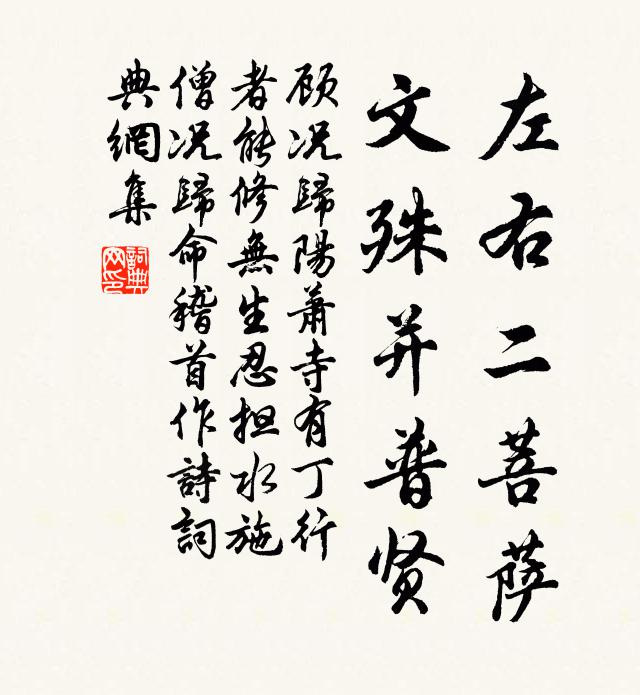 左右二菩萨
文殊并普贤
顾况歸陽蕭寺有丁行
者能修無生忍担水施
僧况歸命稽首作詩詞
典網集
詞典网印